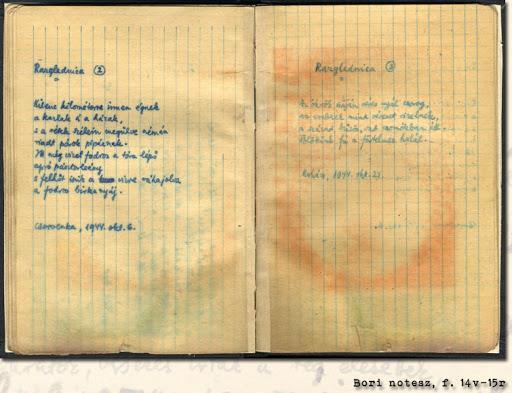 Razglednica (2)
Kilenc kilométerre innen égnek
a kazlak és a házak,
s a rétek szélein megülve némán
riadt pórok pipáznak.
Itt még vizet fodroz a tóra lépő
apró pásztorleány
s felhőt iszik a vizre ráhajolva
a fodros birkanyáj.
Cservenka, 1944. okt. 6.
Razglednica (3)
Az ökrök száján véres nyál csorog,
az emberek mind véreset vizelnek,
a század bűzös, vad csomókban áll.
Fölöttünk fú a förtelmes halál.
Mohács, 1944. okt. 24.
Bori notesz, f. 14v-15r